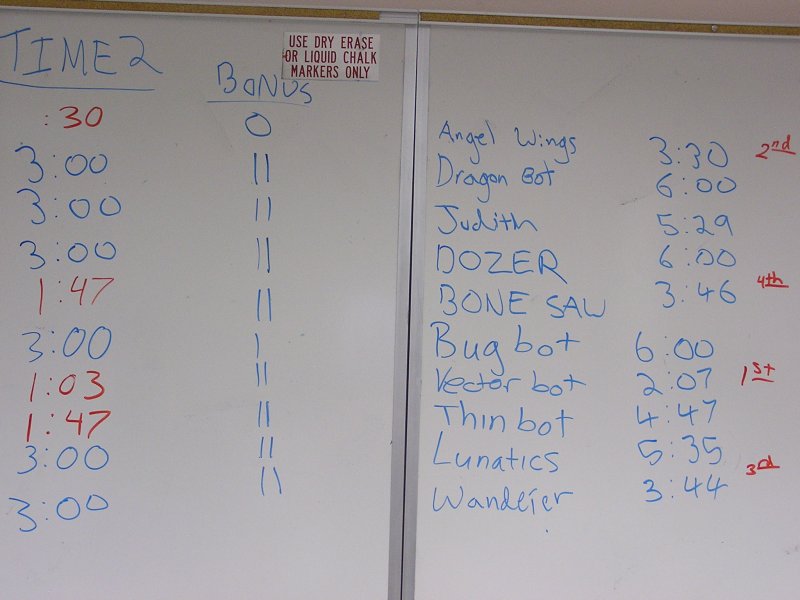 TIME 2
:30
3:00
3:00
3:00
1:47
3:00
1:03
1:47
3:00
3:00
BONUS
0
||
||
||
||
|
||
||
||
||
USE DRY ERASE
OR LIQUID CHALK
MARKERS ONLY
Angel Wings 3:30 2nd
Dragon Bot 6:00
Judith 5:29
DOZER 6:00
BONE SAW 3:46 4th
Bug bot 6:00
Vector bot 2:07 1st
Thin bot 4:47
Lunatics 5:35
Wandeier 3:44 3rd